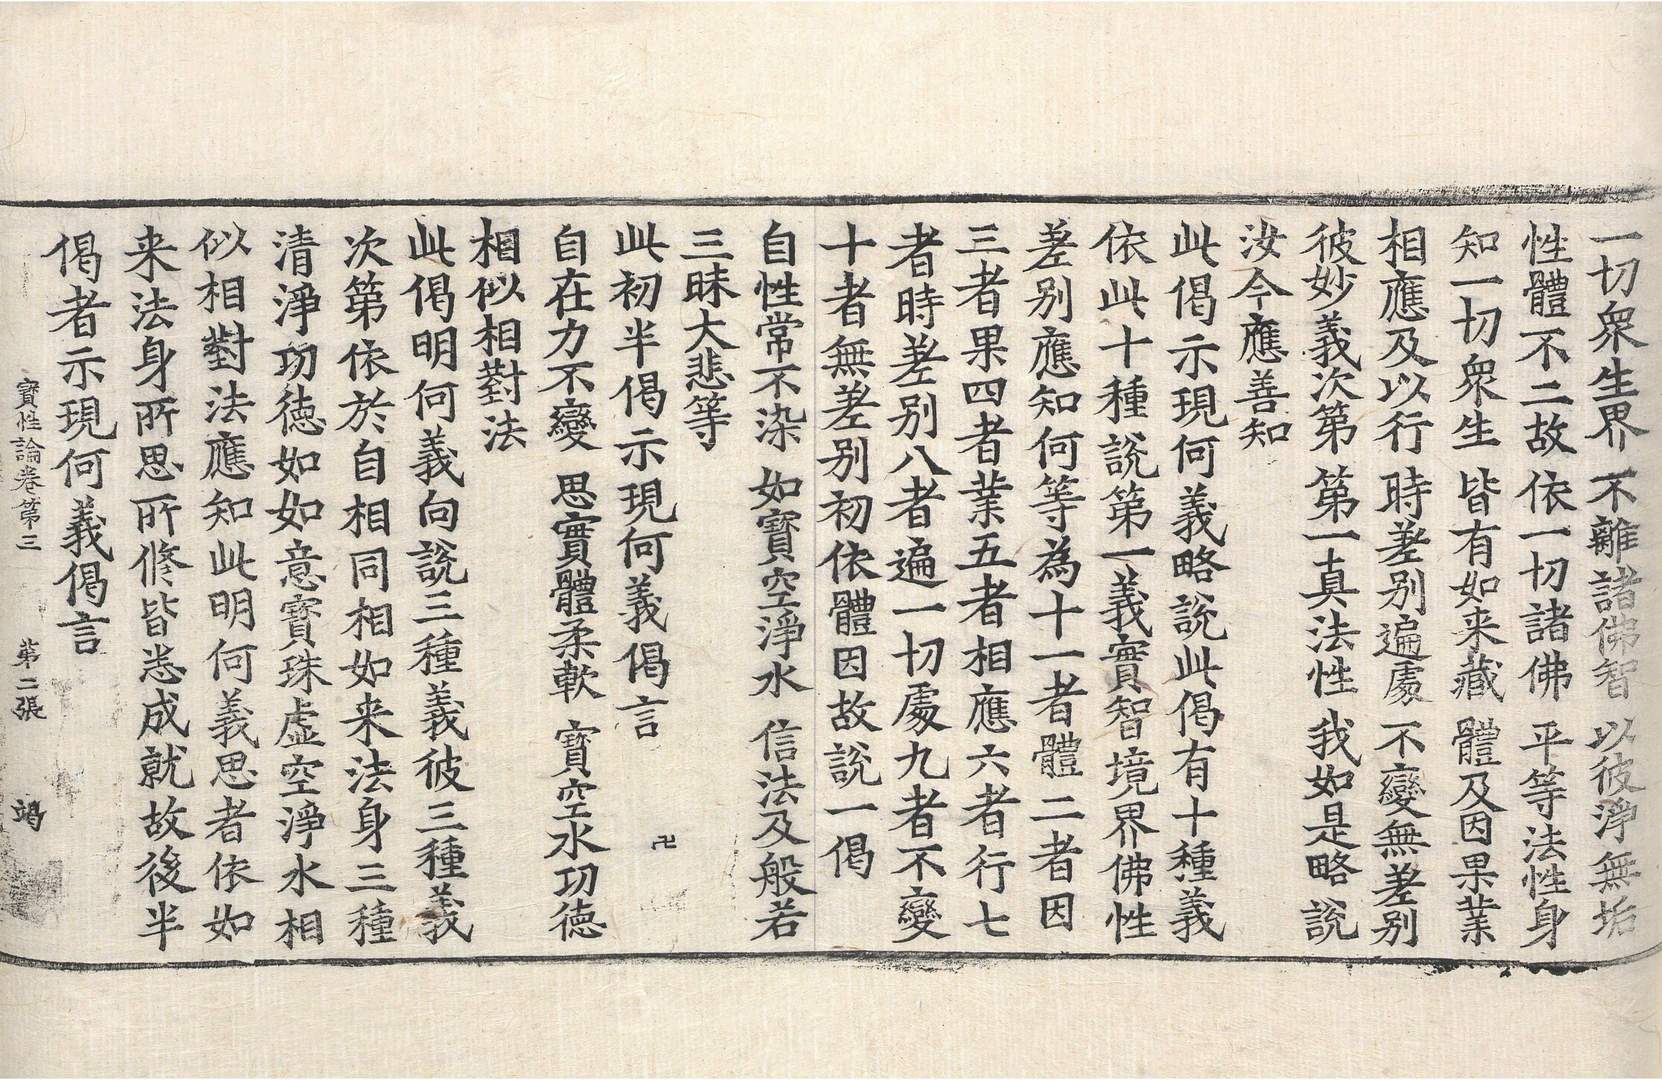 一切衆生界 不離諸佛智 以彼淨無垢
性體不二故 依一切諸佛 平等法性身
知一切衆生 皆有如来藏 體及因果業
相應及以行 時差别遍處 不變無差别
彼妙義次第 第一真法性 我如是略說
汝今應善知
此偈示現何義略說此偈有十種義
依此十種說第一義實智境界佛性
差别應知何等為十一者體二者因
三者果四者業五者相應六者行七
者時差别八者遍一切處九者不變
十者無差别初依體因故說一偈
自性常不染 如寶空淨水 信法及般若
三昧大悲等
此初半偈示現何義偈言 卍
自在力不變 思實體柔軟 寶空水功德
相似相對法
此偈明何義向說三種義彼三種義
次第依於自相同相如来法身三種
清淨功德如如意寶珠虚空淨水相
似相對法應知此明何義思者依如
来法身所思所修皆悉成就故後半
偈者示現何義偈言
寶性論卷第三 第二張 竭